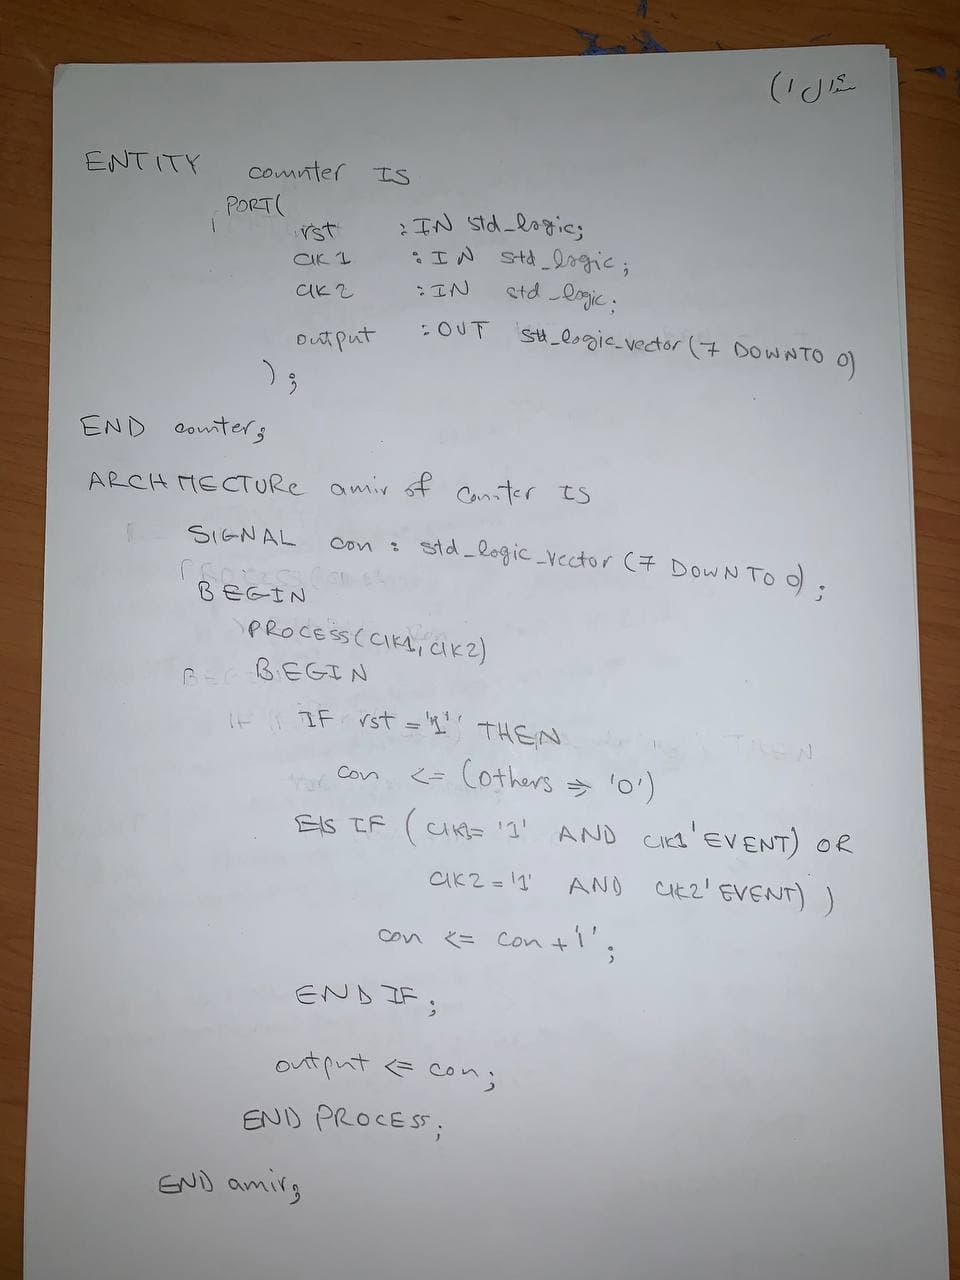 سوال 1)
ENTITY counter IS
PORT(
rst : IN std_logic;
clk 1 : IN std_logic;
clk 2 : IN std_logic;
output : OUT std_logic_vector (7 DOWNTO 0)
);
END counter;
ARCHITECTURE amir of counter IS
SIGNAL con : std_logic_vector (7 DOWNTO 0);
BEGIN
PROCESS(clk1, clk2)
BEGIN
IF rst = '1' THEN
con <= (others => '0')
ElS IF ( clk1= '1' AND clk1'EVENT) OR
clk2 = '1' AND clk2'EVENT) )
con <= con + '1';
END IF;
output <= con;
END PROCESS;
END amir;